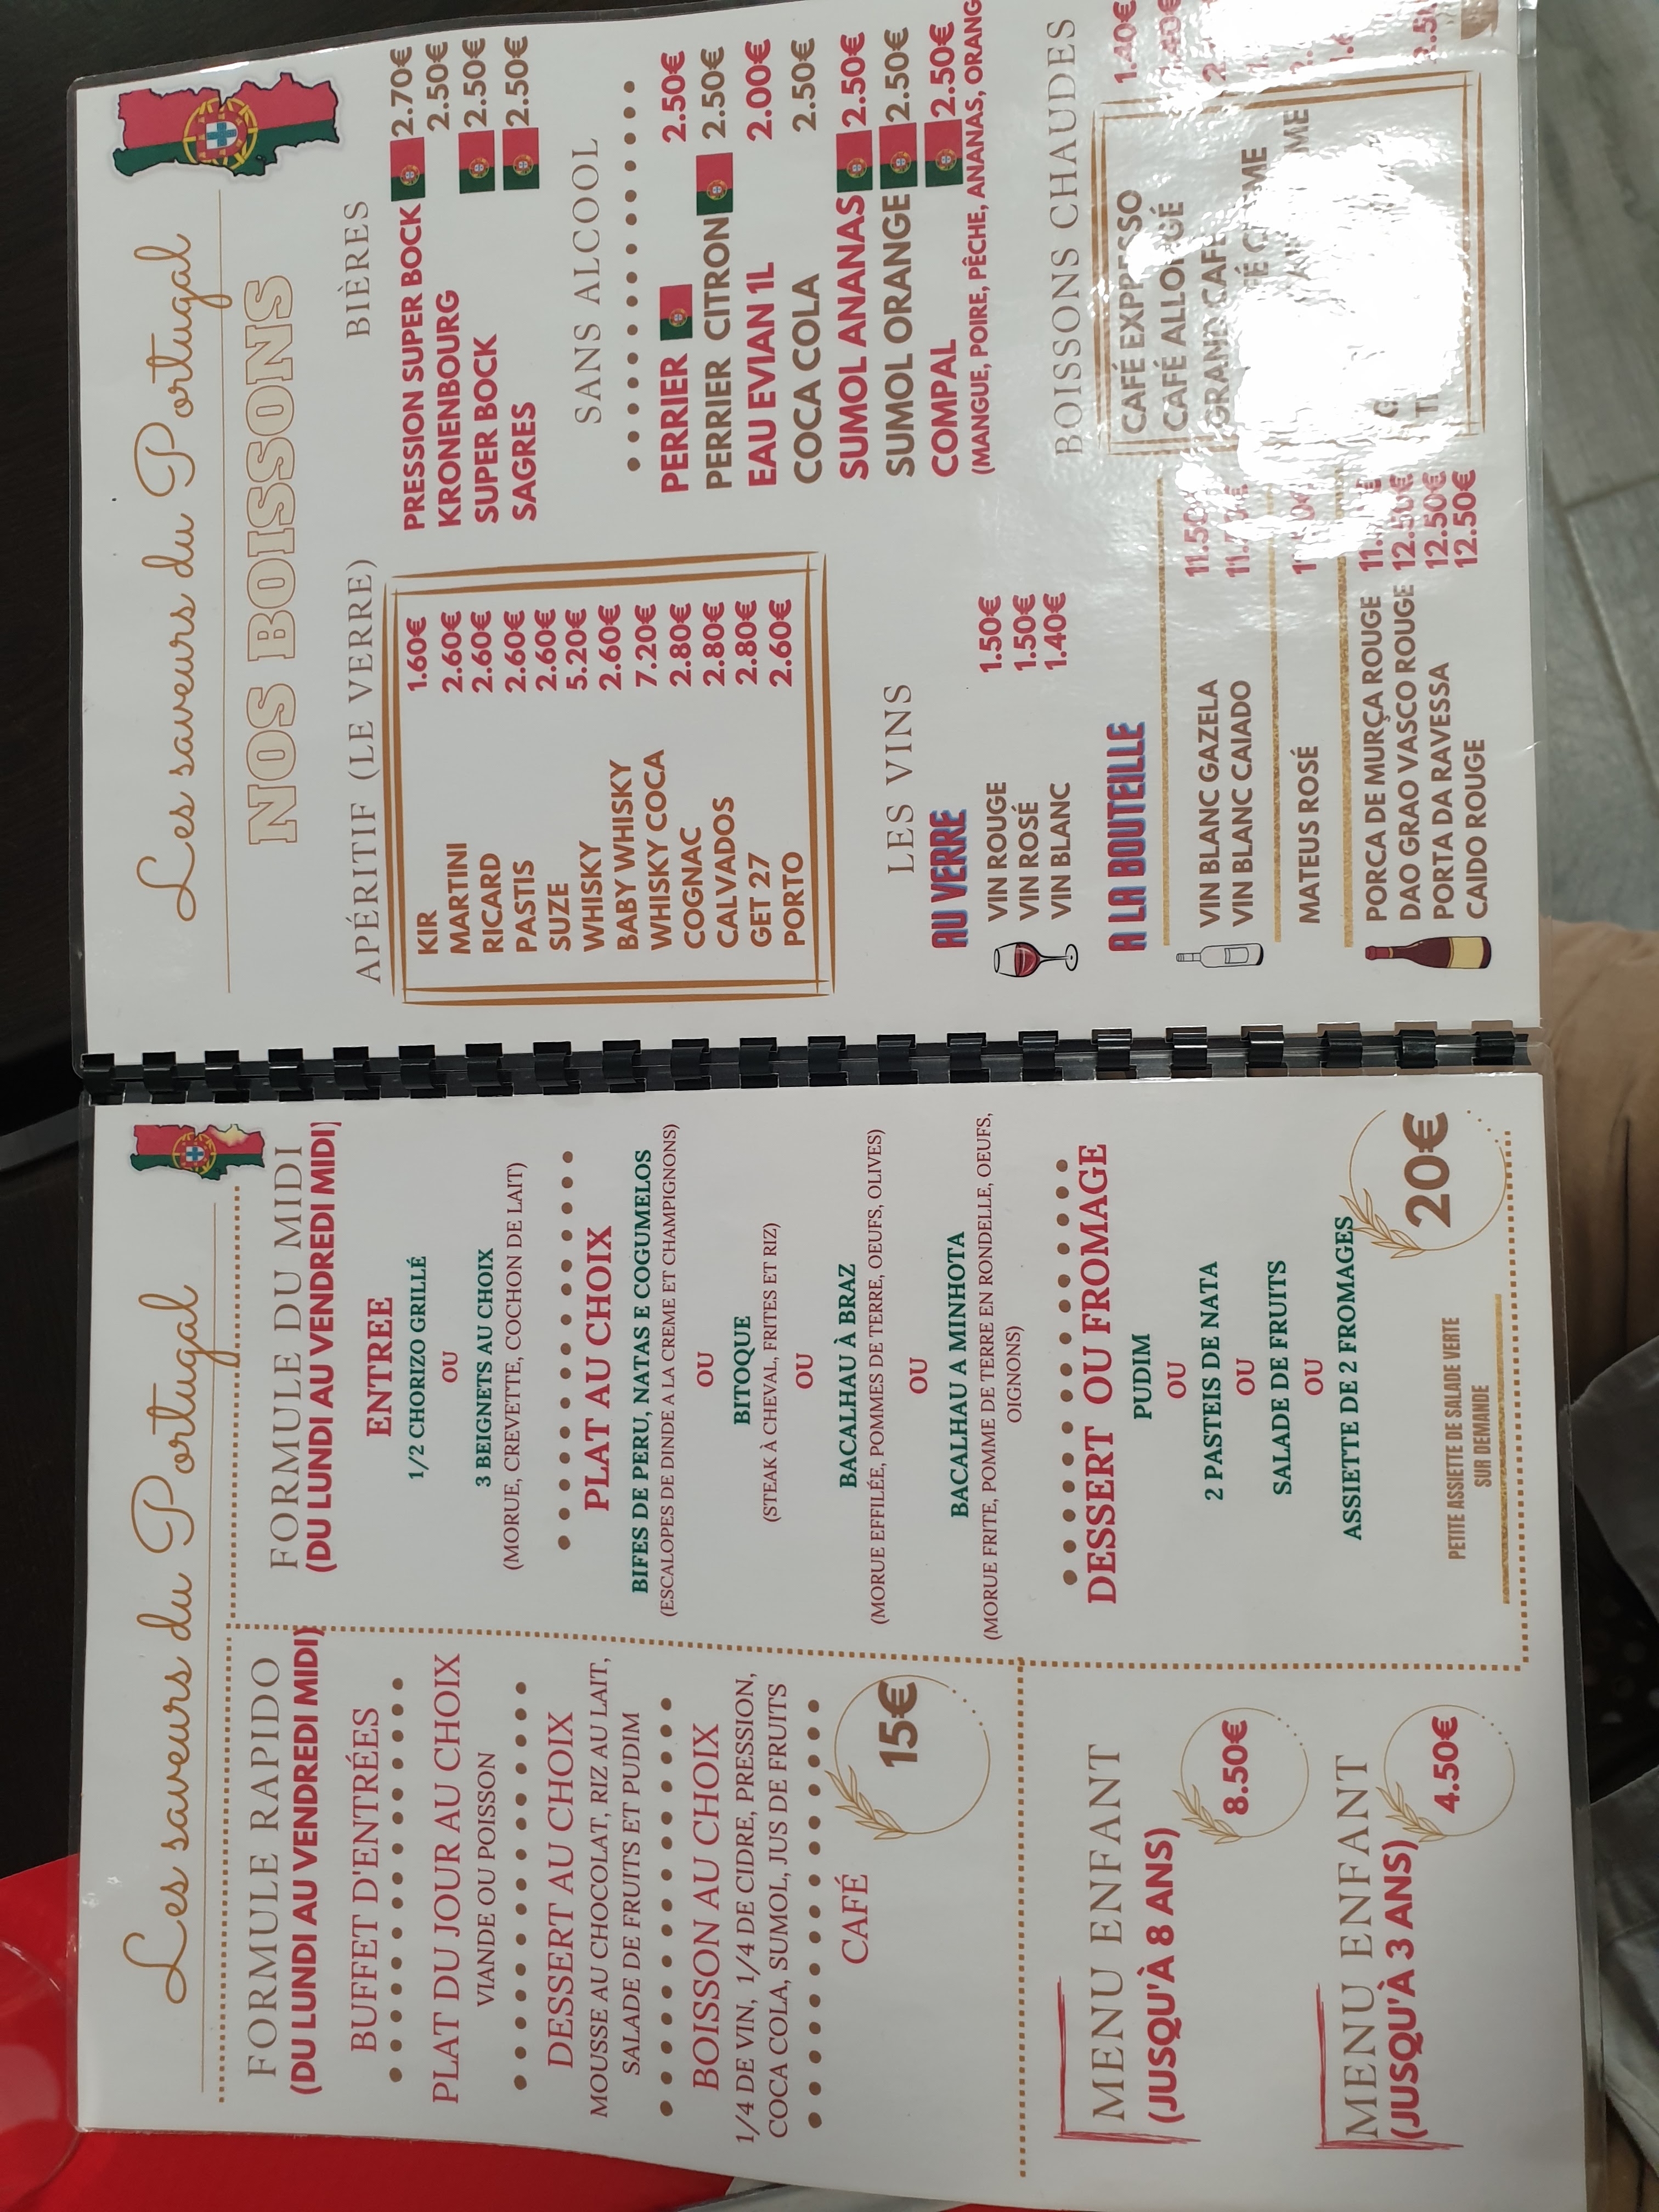 Les saveurs du Portugal
FORMULE RAPIDO
(DU LUNDI AU VENDREDI MIDI)
BUFFET D'ENTRÉES
PLAT DU JOUR AU CHOIX
VIANDE OU POISSON
DESSERT AU CHOIX
MOUSSE AU CHOCOLAT, RIZ AU LAIT,
SALADE DE FRUITS ET PUDIM
BOISSON AU CHOIX
1/4 DE VIN, 1/4 DE CIDRE, PRESSION,
COCA COLA, SUMOL, JUS DE FRUITS
CAFÉ
15€
MENU ENFANT
(JUSQU'À 8 ANS)
8.50€
MENU ENFANT
(JUSQU'À 3 ANS)
4.50€
FORMULE DU MIDI
(DU LUNDI AU VENDREDI MIDI)
ENTREE
1/2 CHORIZO GRILLÉ
OU
3 BEIGNETS AU CHOIX
(MORUE, CREVETTE, COCHON DE LAIT)
PLAT AU CHOIX
BIFES DE PERU, NATAS E COGUMELOS
(ESCALOPES DE DINDE A LA CREME ET CHAMPIGNONS)
OU
BITOQUE
(STEAK À CHEVAL, FRITES ET RIZ)
OU
BACALHAU À BRAZ
(MORUE EFFILÉE, POMMES DE TERRE, OEUFS, OLIVES)
OU
BACALHAU A MINHOTA
(MORUE FRITE, POMME DE TERRE EN RONDELLE, OEUFS,
OIGNONS)
DESSERT OU FROMAGE
PUDIM
OU
2 PASTEIS DE NATA
OU
SALADE DE FRUITS
OU
ASSIETTE DE 2 FROMAGES
20€
PETITE ASSIETTE DE SALADE VERTE
SUR DEMANDE
Les saveurs du Portugal
NOS BOISSONS
APÉRITIF (LE VERRE)
KIR 1.60€
MARTINI 2.60€
RICARD 2.60€
PASTIS 2.60€
SUZE 2.60€
WHISKY 5.20€
BABY WHISKY 2.60€
WHISKY COCA 7.20€
COGNAC 2.80€
CALVADOS 2.80€
GET 27 2.80€
PORTO 2.60€
LES VINS
AU VERRE
VIN ROUGE 1.50€
VIN ROSÉ 1.50€
VIN BLANC 1.40€
A LA BOUTEILLE
VIN BLANC GAZELA 11.50€
VIN BLANC CAIADO
MATEUS ROSÉ
PORCA DE MURÇA ROUGE
DAO GRAO VASCO ROUGE 12.50€
PORTA DA RAVESSA 12.50€
CAIDO ROUGE 12.50€
BIÈRES
PRESSION SUPER BOCK 2.70€
KRONENBOURG 2.50€
SUPER BOCK 2.50€
SAGRES 2.50€
SANS ALCOOL
PERRIER 2.50€
PERRIER CITRON 2.50€
EAU EVIAN 1L 2.00€
COCA COLA 2.50€
SUMOL ANANAS 2.50€
SUMOL ORANGE 2.50€
COMPAL 2.50€
(MANGUE, POIRE, PÊCHE, ANANAS, ORANG
BOISSONS CHAUDES
CAFÉ EXPRESSO 1.40€
CAFÉ ALLONGÉ
GRAND CAFE